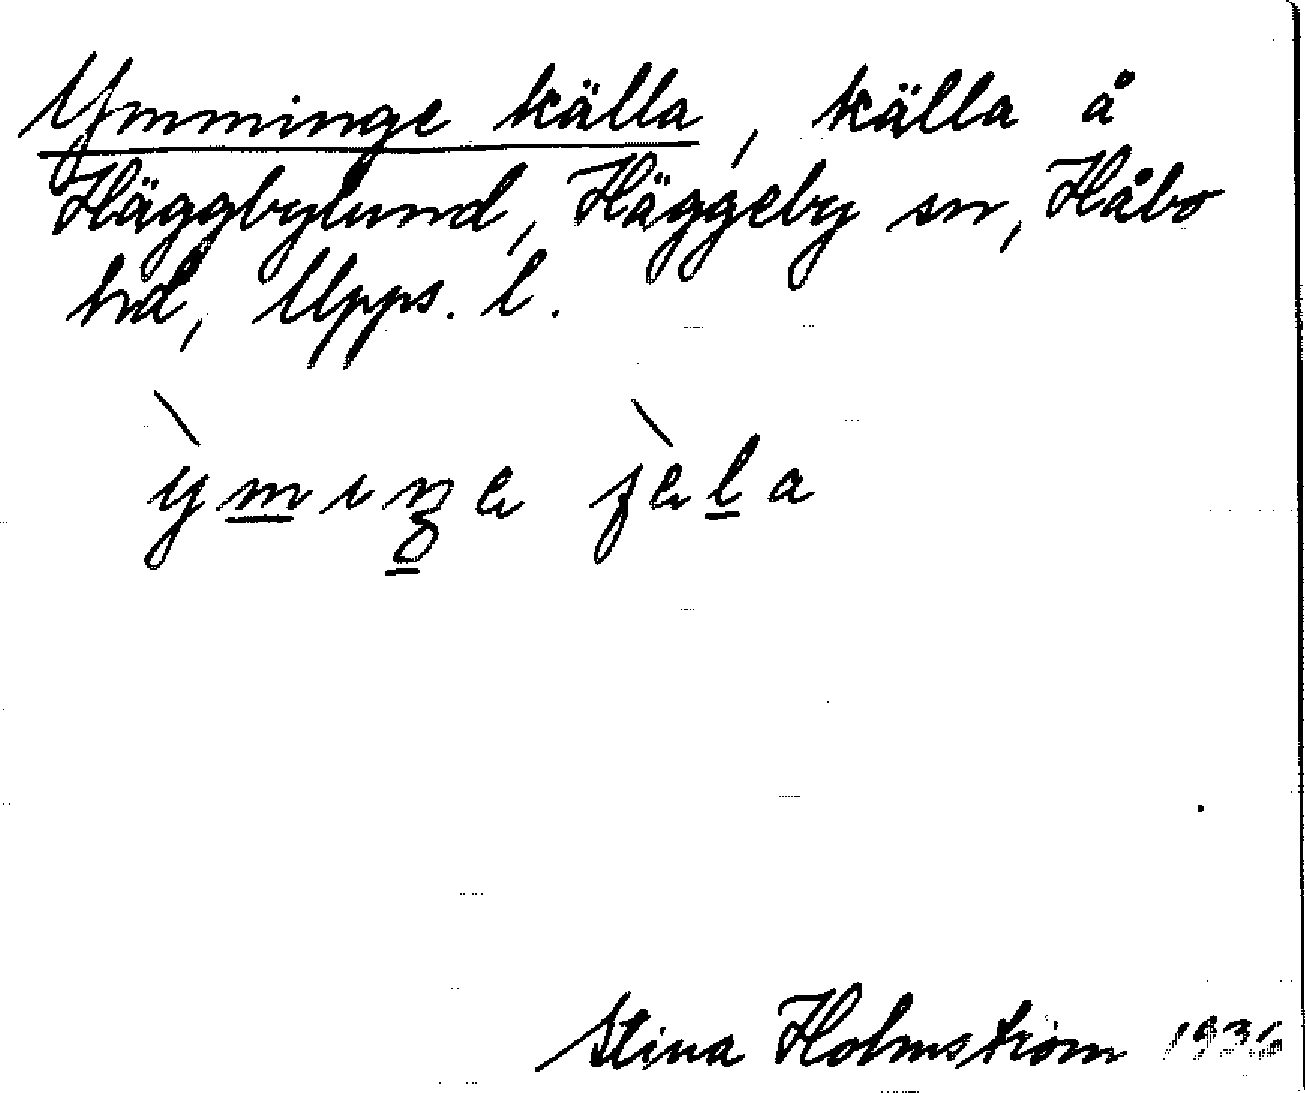 Ymminge källa, källa å
Häggbylund, Häggeby sn, Håbo
hd, Upps. l.
Stina Holmström 1936